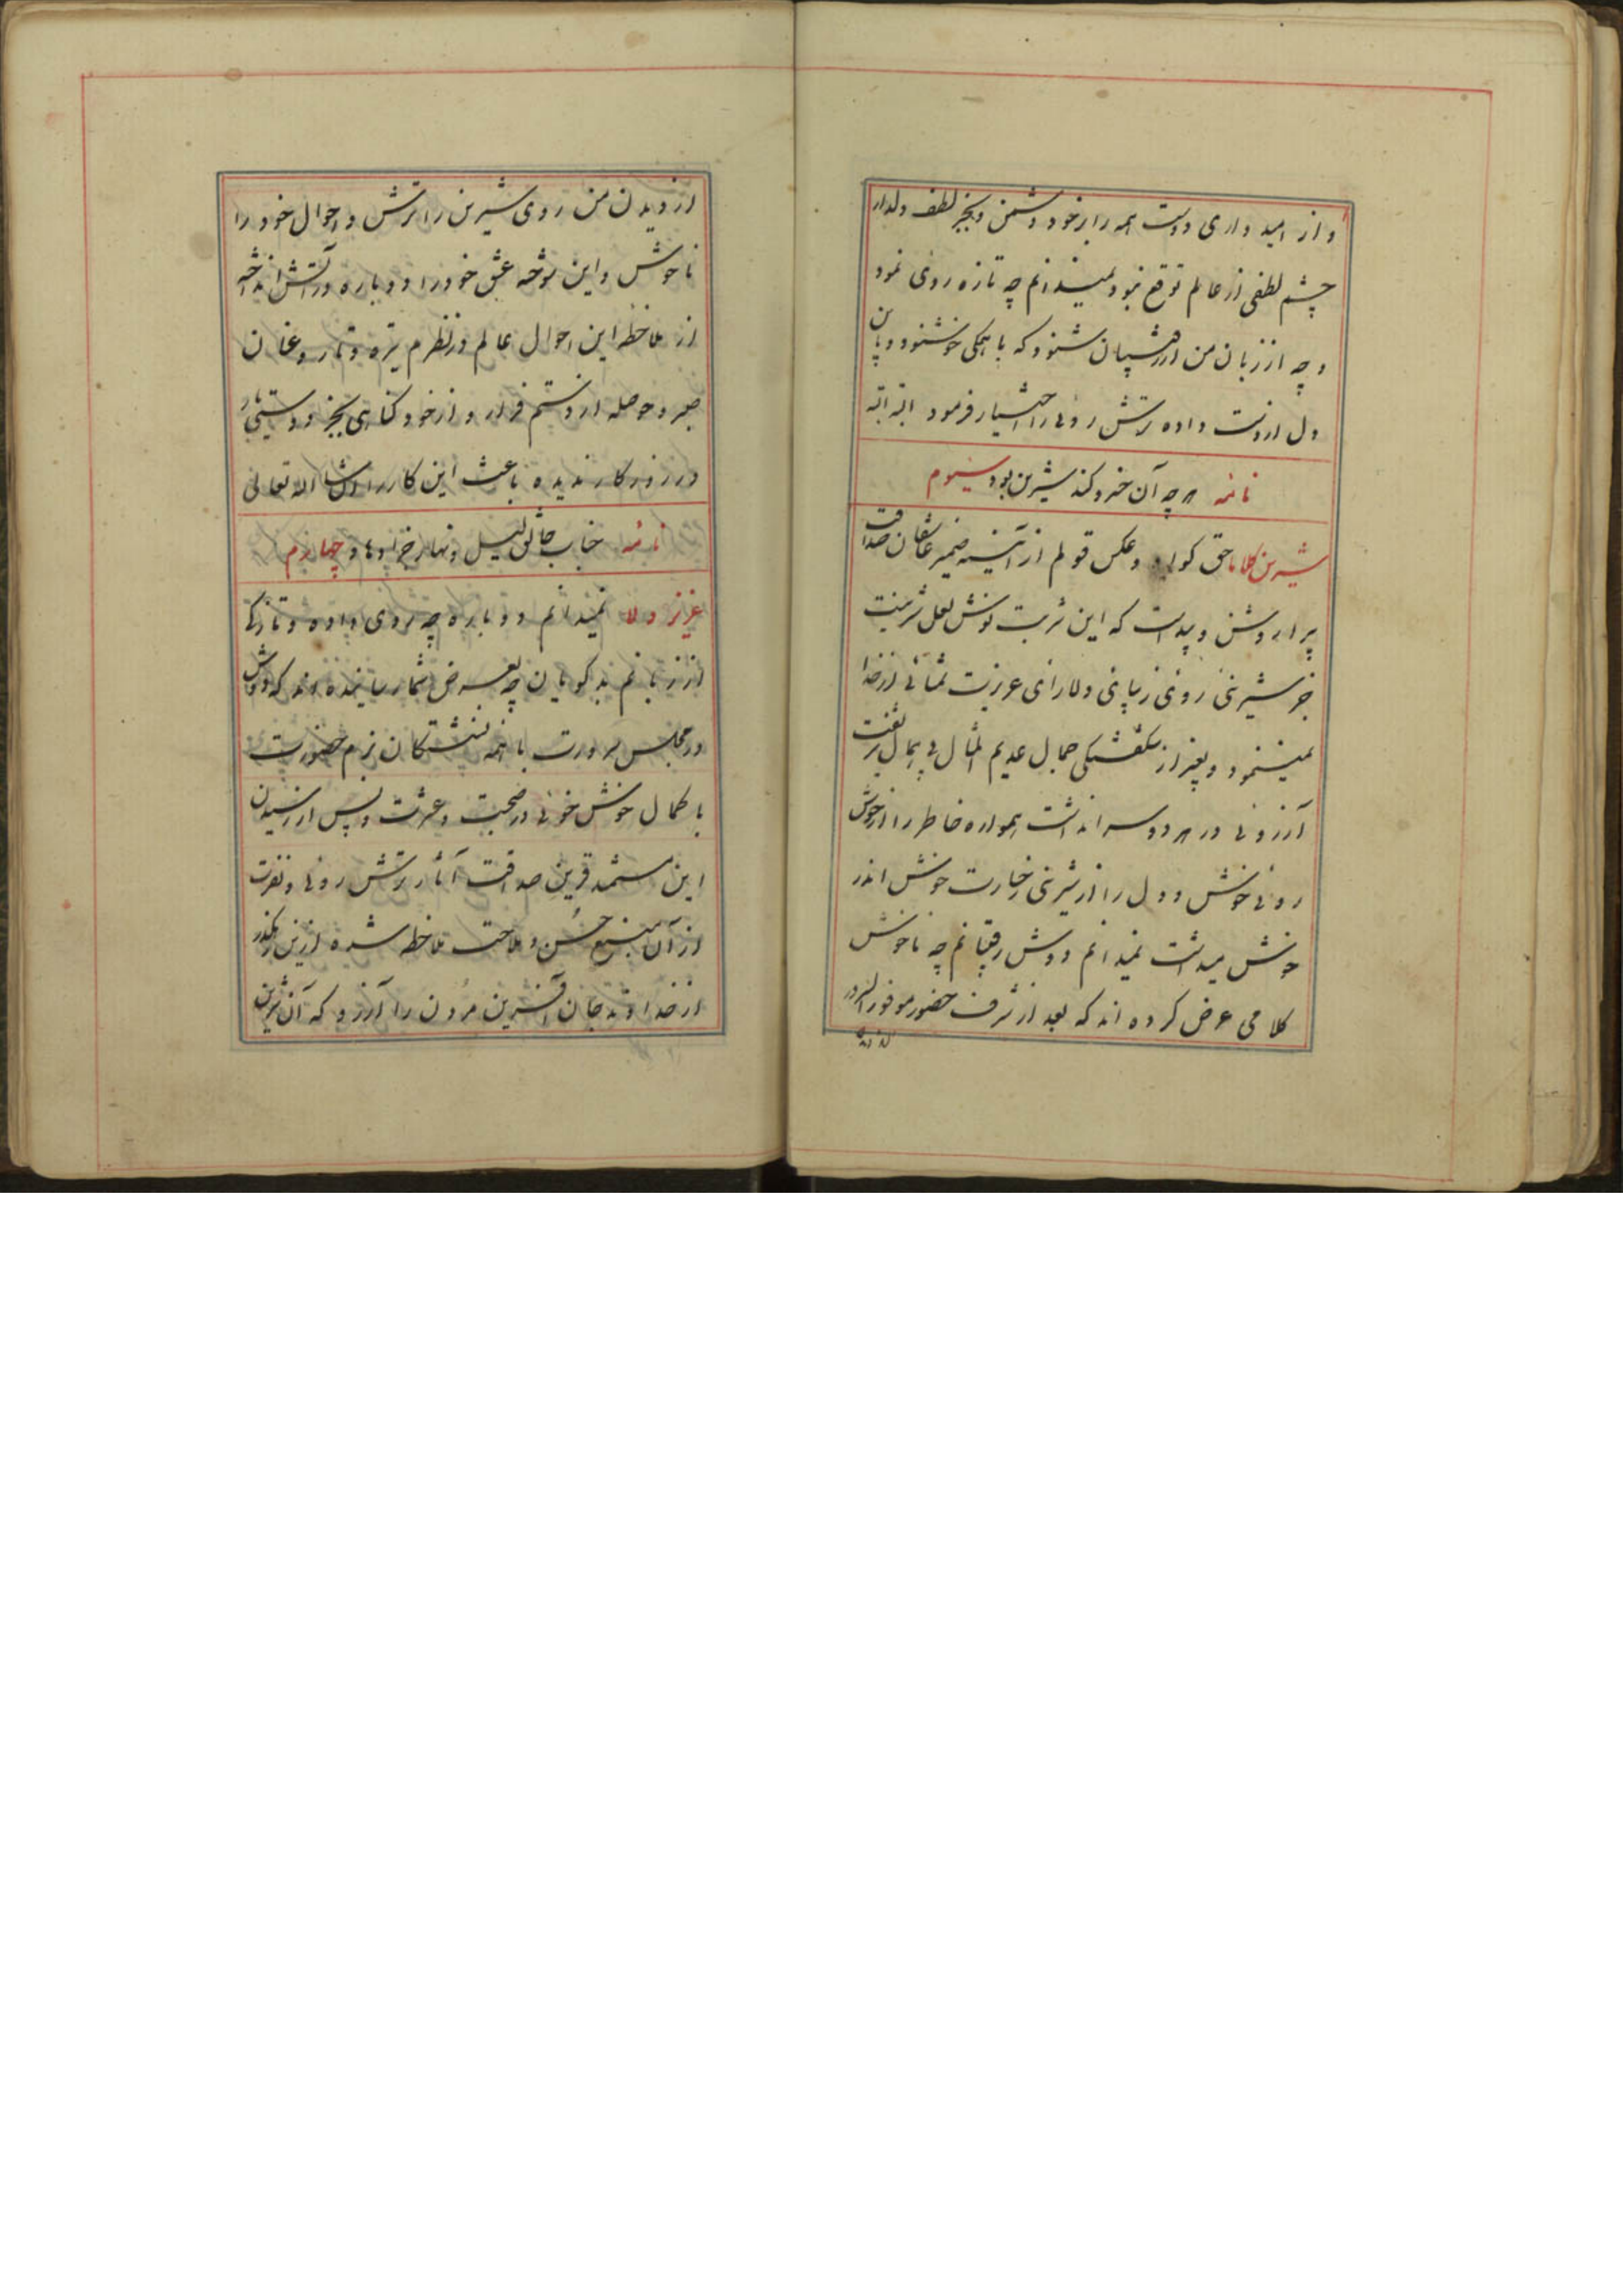 و از امید واری دوست همه را بر خود دشمن و بجز لطف دلدار
چشم لطفی از عالم توقع نبود نمیدانم چه تازه روی نمود
و چه از زبان من از رقیبان شنود که با همگی خوشنود و باین
دل از دست داده ترش روئی را اختیار فرمود البته البته
نامه هر چه آن خسرو کند شیرین بود سیوم
شیرین کلاما حق گواه و عکس قولم از آئینه ضمیر عاشقان صداقت
پیرا روشن و پیداست که این شربت نوش لعل شیرینت
جز شیرینی روی زیبای دلارای عزیزت تمنائی از خدا
نمینمود و بغیر از شگفتگی جمال عدیم المثال بی همال پر نعمت
آرزوئی در هر دو سر انداشت همواره خاطر را از خوش
روئی خوش و دل را از شیرینی رخسارت خوش اندر
خوش میداشت نمیدانم دوش رقیبانم چه ناخوش
کلامی عرض کرده اند که بعد از شرف حضور موفور السرور
از دیدن من روی شیرین را ترش و احوال خود را
ناخوش و این سوخته عشق خود را دوباره در آتش انداخته
از ملاحظه این احوال عالم در نظرم تیره و تار و عنان
صبر و حوصله از دستم فرار و از خود گناهی بجز دوستی یار
در روزگار ندیده باعث این کار را انشا الله تعالی
نامه جناب خالق لیل و نهار جزا دهاد چهارم
عزیز دلا نمیدانم دوباره چه روی داده و تازه‌ها
از زبانم بدگویان چه بعرض شما رسانیده اند که دوش
در مجلس سرورت با همه نشستگان بزم حضورت
با کمال خوش خوئی در صحبت و عشرت و پس از رسیدن
این مستمند قرین صداقت آثار ترش روئی و نفرت
از آن منبع حسن و ملاحت ملاحظه شده ازین رهگذر
از خداوند جان آفرین مردن را آرزو که آن شیرین